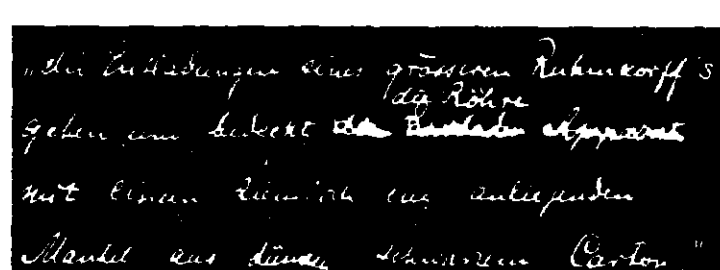 „die Entladungen eines grösseren Ruhmkorff's
die Röhre
gehen und bedeckt Apparat
mit einem ziemlich eng anliegenden
Mantel aus dünnem schwarzem Carton"